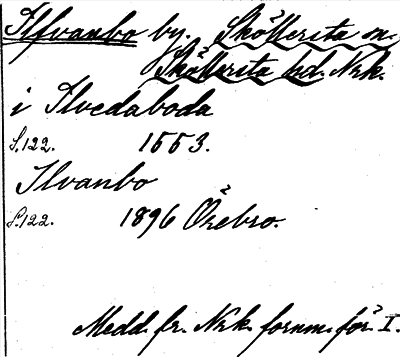 Ilfvanbo by. Sköllersta sn.
Sköllersta hd. Nrk.
i Ilvedaboda
S. 122. 1553.
Ilvanbo
S. 122. 1896 Örebro.
Medd. fr. Nrk. fornm. för. I.